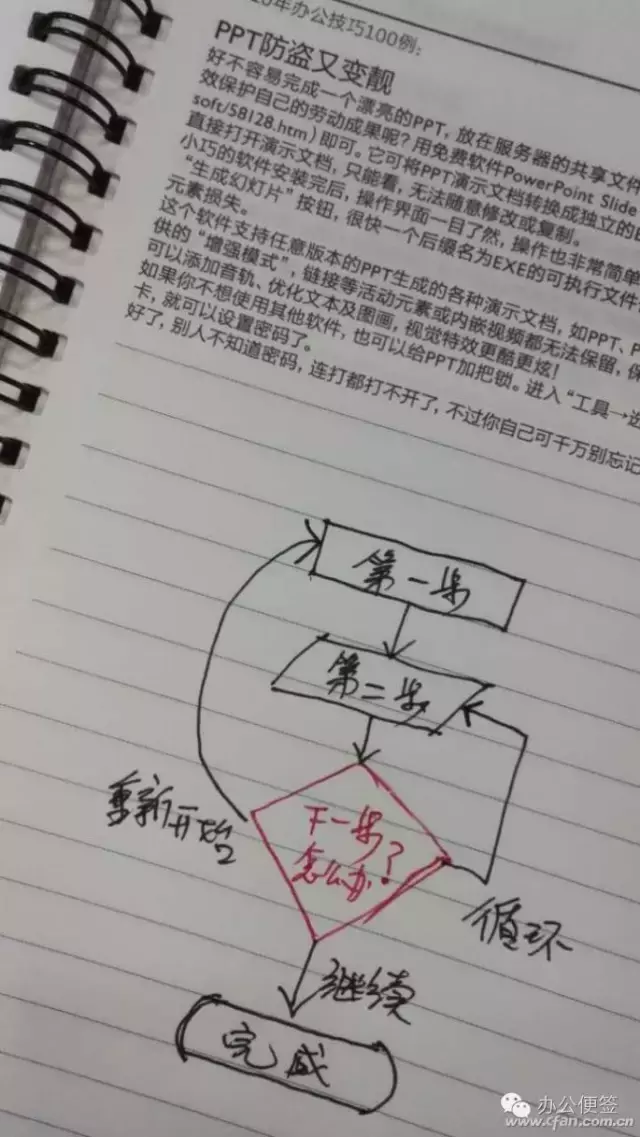 10年办公技巧100例：
PPT防盗又变靓
好不容易完成一个漂亮的PPT，放在服务器的共享文件
效保护自己的劳动成果呢？用免费软件PowerPoint Slide
soft/58128.htm）即可。它可将PPT演示文档转换成独立的E
直接打开演示文档，只能看，无法随意修改或复制。
小巧的软件安装完后，操作界面一目了然，操作也非常简单
“生成幻灯片”按钮，很快一个后缀名为EXE的可执行文件
元素损失。
这个软件支持任意版本的PPT生成的各种演示文档，如PPT、P
供的“增强模式”，链接等活动元素或内嵌视频都无法保留，保
可以添加音轨、优化文本及图画，视觉特效更酷更炫！
如果你不想使用其他软件，也可以给PPT加把锁。进入“工具→选
卡，就可以设置密码了。
好了，别人不知道密码，连打都打不开了，不过你自己可千万别忘记
第一步
第二步
下一步
怎么办？
重新开始
循环
继续
完成
办公便签
www.cfan.com.cn